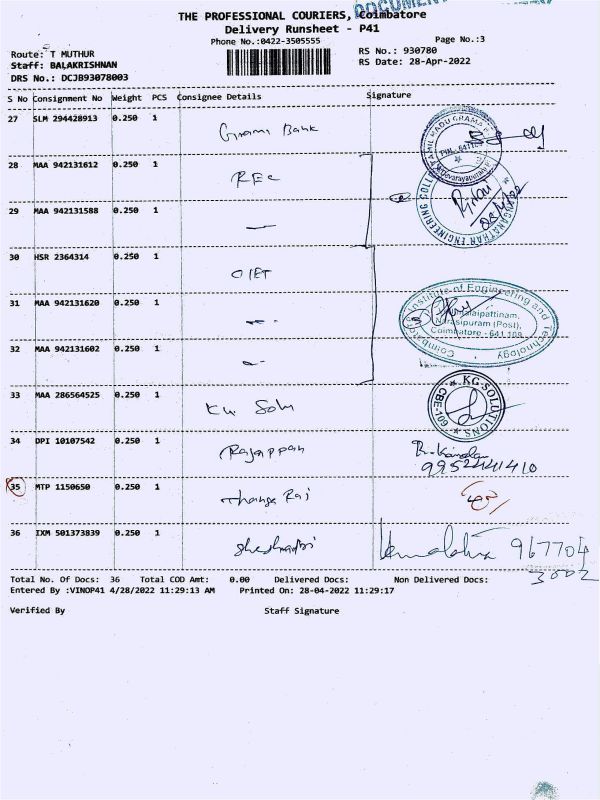 THE PROFESSIONAL COURIERS, Coimbatore
DOCUMENT
Delivery Runsheet - P41
Phone No.:0422-3505555
Page No.:3
Route: T MUTHUR
RS No.: 930780
Staff: BALAKRISHNAN
RS Date: 28-Apr-2022
DRS No.: DCJB93078003
S No Consignment No Weight PCS Consignee Details Signature
27 SLM 294428913 0.250 1 Grami Bank
28 MAA 942131612 0.250 1 REC
29 MAA 942131588 0.250 1
30 HSR 2364314 0.250 1 CIET
31 MAA 942131620 0.250 1
Coimbatore Institute of Engineering and Technology
Narasipuram (Post),
Coimbatore - 641 109
32 MAA 942131602 0.250 1
33 MAA 286564525 0.250 1 KG Solu
KG SOLUTIONS
CBE-109
34 DPI 10107542 0.250 1 Rajappan
9952441410
35 MTP 1150650 0.250 1 Thanga Raj
36 IXM 501373839 0.250 1 Sheshadri
967704
3002
Total No. Of Docs: 36 Total COD Amt: 0.00 Delivered Docs: Non Delivered Docs:
Entered By :VINOP41 4/28/2022 11:29:13 AM Printed On: 28-04-2022 11:29:17
Verified By Staff Signature